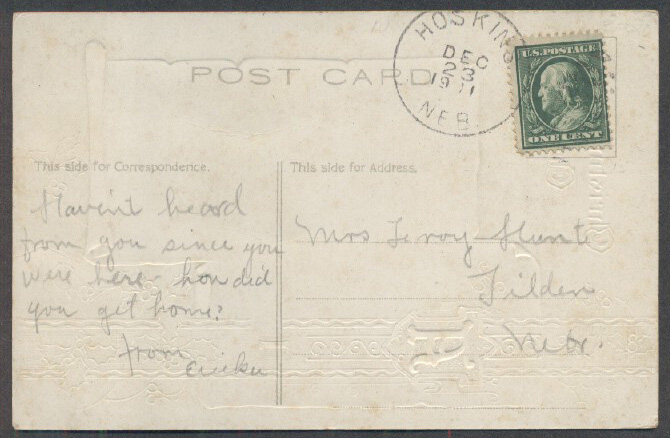 HOSKINS
DEC
23
1911
NEB.
U.S. POSTAGE
ONE CENT
POST CARD
This side for Correspondence.
This side for Address.
Haven't heard
from you since you
were here - how did
you get home?
from
Mrs Leroy Hunt
Tilden
Nebr.